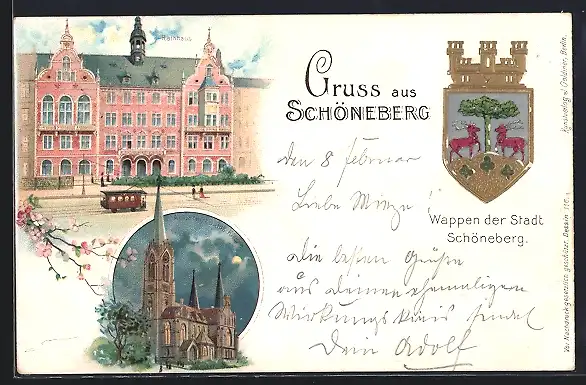 Rathaus
Gruss aus
SCHÖNEBERG
den 8 Februar
Liebe Minze!
die besten Grüße
aus deinem ehemaligen
Wirkungskreis sendet
Dein Adolf
Wappen der Stadt
Schöneberg.
Kunstverlag J. Goldiner, Berlin.
Vor Nachdruck gesetzlich geschützt. Dessin